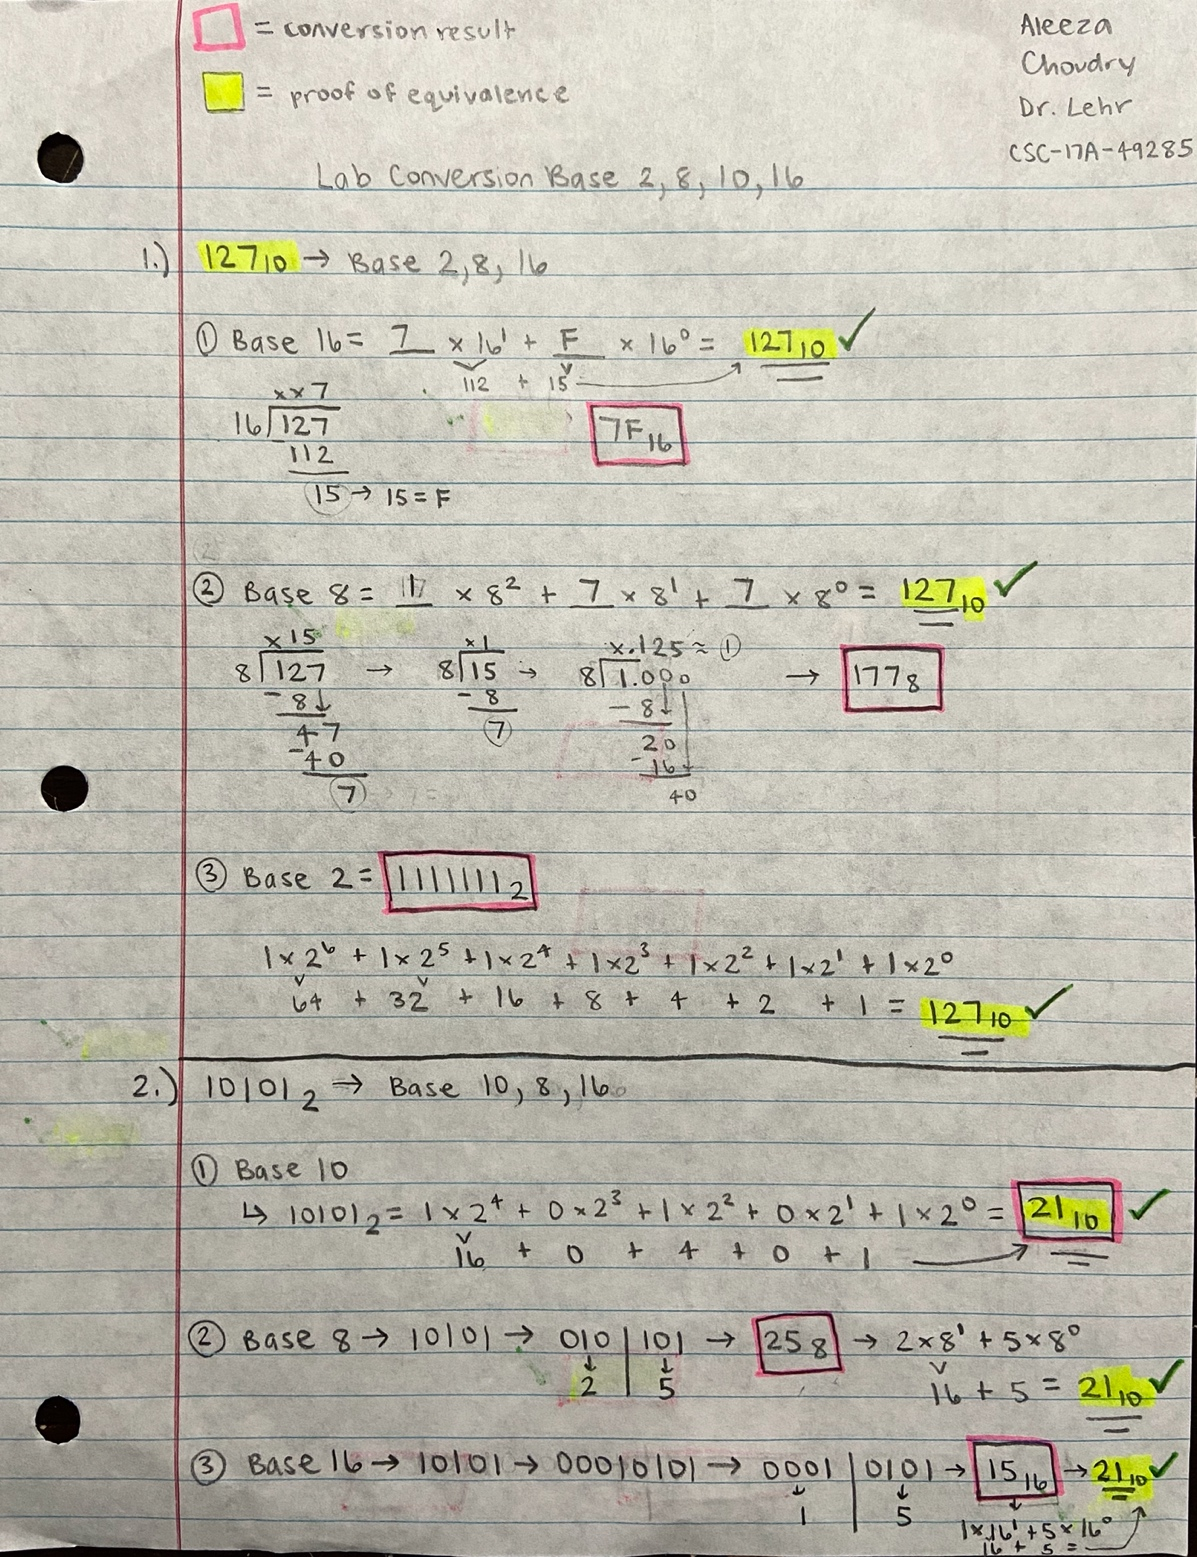 = conversion result
= proof of equivalence
Aleeza
Choudry
Dr. Lehr
CSC-17A-49285
Lab Conversion Base 2, 8, 10, 16
1.) 127₁₀ → Base 2, 8, 16
① Base 16 = 7 × 16¹ + F × 16⁰ = 127₁₀ ✓
112 + 15
××7
16 127
112
15 → 15 = F
7F₁₆
② Base 8 = 1 × 8² + 7 × 8¹ + 7 × 8⁰ = 127₁₀ ✓
×15 ×1 ×.125 ≈ ①
8 127 → 8 15 → 8 1.000 → 177₈
-8↓ -8 -8↓
47 7 20
-40 -16↓
7 40
③ Base 2 = 1111111₂
1×2⁶ + 1×2⁵ + 1×2⁴ + 1×2³ + 1×2² + 1×2¹ + 1×2⁰
64 + 32 + 16 + 8 + 4 + 2 + 1 = 127₁₀ ✓
2.) 10101₂ → Base 10, 8, 16
① Base 10
↳ 10101₂ = 1×2⁴ + 0×2³ + 1×2² + 0×2¹ + 1×2⁰ = 21₁₀ ✓
16 + 0 + 4 + 0 + 1
② Base 8 → 10101 → 010 | 101 → 25₈ → 2×8¹ + 5×8⁰
2 | 5 16 + 5 = 21₁₀ ✓
③ Base 16 → 10101 → 00010101 → 0001 | 0101 → 15₁₆ → 21₁₀ ✓
1 | 5 1×16¹ + 5×16⁰
16 + 5 =